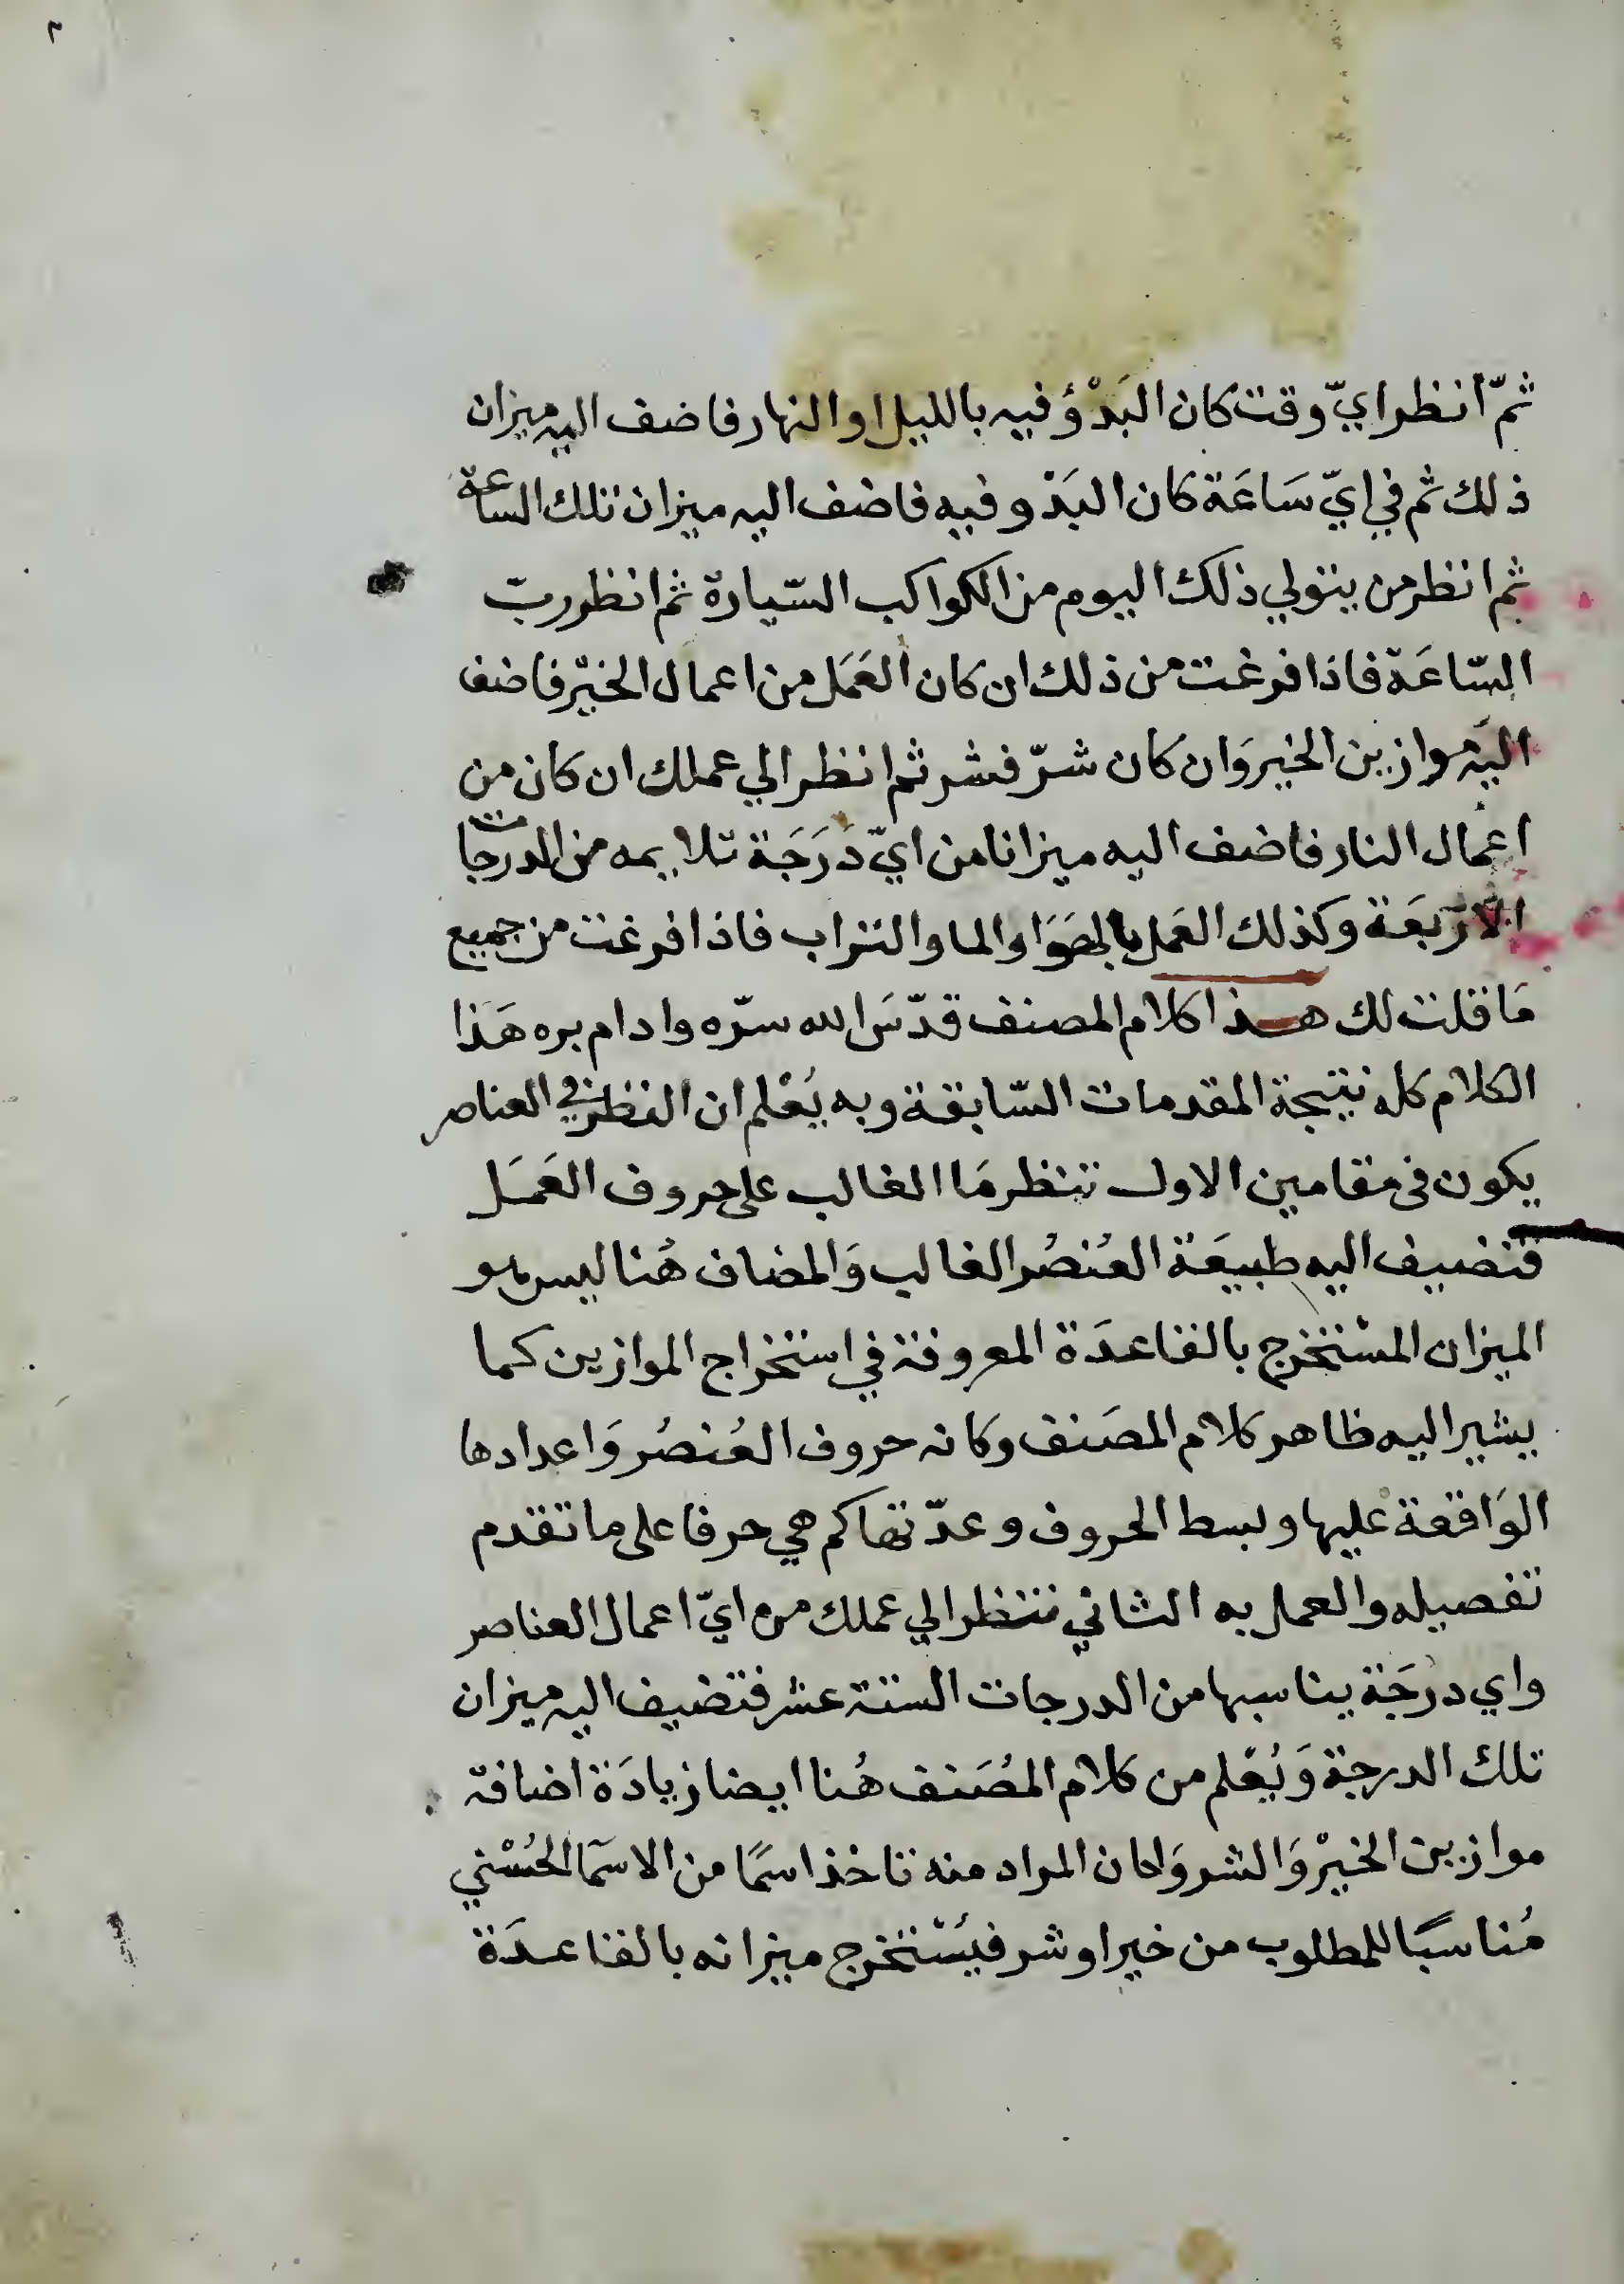 ٢
ثمّ انظر ايّ وقت كان البَدْؤ فيه بالليل او النهار فاضف اليه ميزان
ذلك ثم في ايّ سَاعَة كان البَدْو فيه فاضف اليه ميزان تلك الساعة
ثم انظر من يتولي ذلك اليوم من الكواكب السّيارة ثم انظر وربّ
السّاعَة فاذا فرغت من ذلك ان كان العَمَل من اعمال الخيْر فاضف
اليه موازين الخير وَان كان شرّ فشر ثم انظر الي عملك ان كان من
اعمال النار فاضف اليه ميزانا من ايّ دَرَجَة تلايمه من الدرجات
الاربَعَة وكذلك العَمل بالهوَا والما والتراب فاذا فرغت من جميع
مَا قلت لك هذا كلام المصنف قدّسَ الله سرّه وادام بره هَذا
الكلام كله نتيجة المقدمات السّابقة وبه يُعْلم ان النظر في العناصر
يكون في مقامين الاول تنظر مَا الغالب على حروف العَمَل
فتضيف اليه طبيعَة العُنصُر الغالب وَالمضاف هُنا ليس هو
الميزان المسْتخرج بالقاعدَة المعروفة في استخراج الموازين كما
يشير اليه ظاهر كلام المصَنف وكانه حروف العُنصُر وَاعدادها
الوَاقعة عليها وبسط الحروف وعدّتها كم هي حرفا على ما تقدم
تفصيله والعمل به الثاني تنظر الي عملك من ايّ اعمال العناصر
واي درَجَة يناسبها من الدرجات الستة عشر فتضيف اليه ميزان
تلك الدرجة وَيُعْلم من كلام المُصَنف هُنا ايضا زيادَة اضافة
موازين الخيْر وَالشر وَكان المراد منه تاخذ اسمًا من الاسمآ الحُسْني
مُناسبًا للمطلوب من خير او شر فيُسْتخرج ميزانه بالقاعدَة